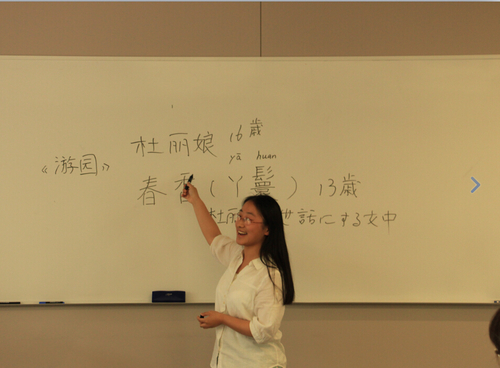 杜丽娘 16歳
yā huan
《游园》
春香(丫鬟) 13歳
杜丽 世話にする女中